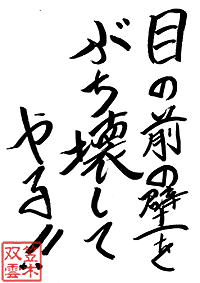 目の前の壁を
ぶち壊して
やる!!
笠木
双雲